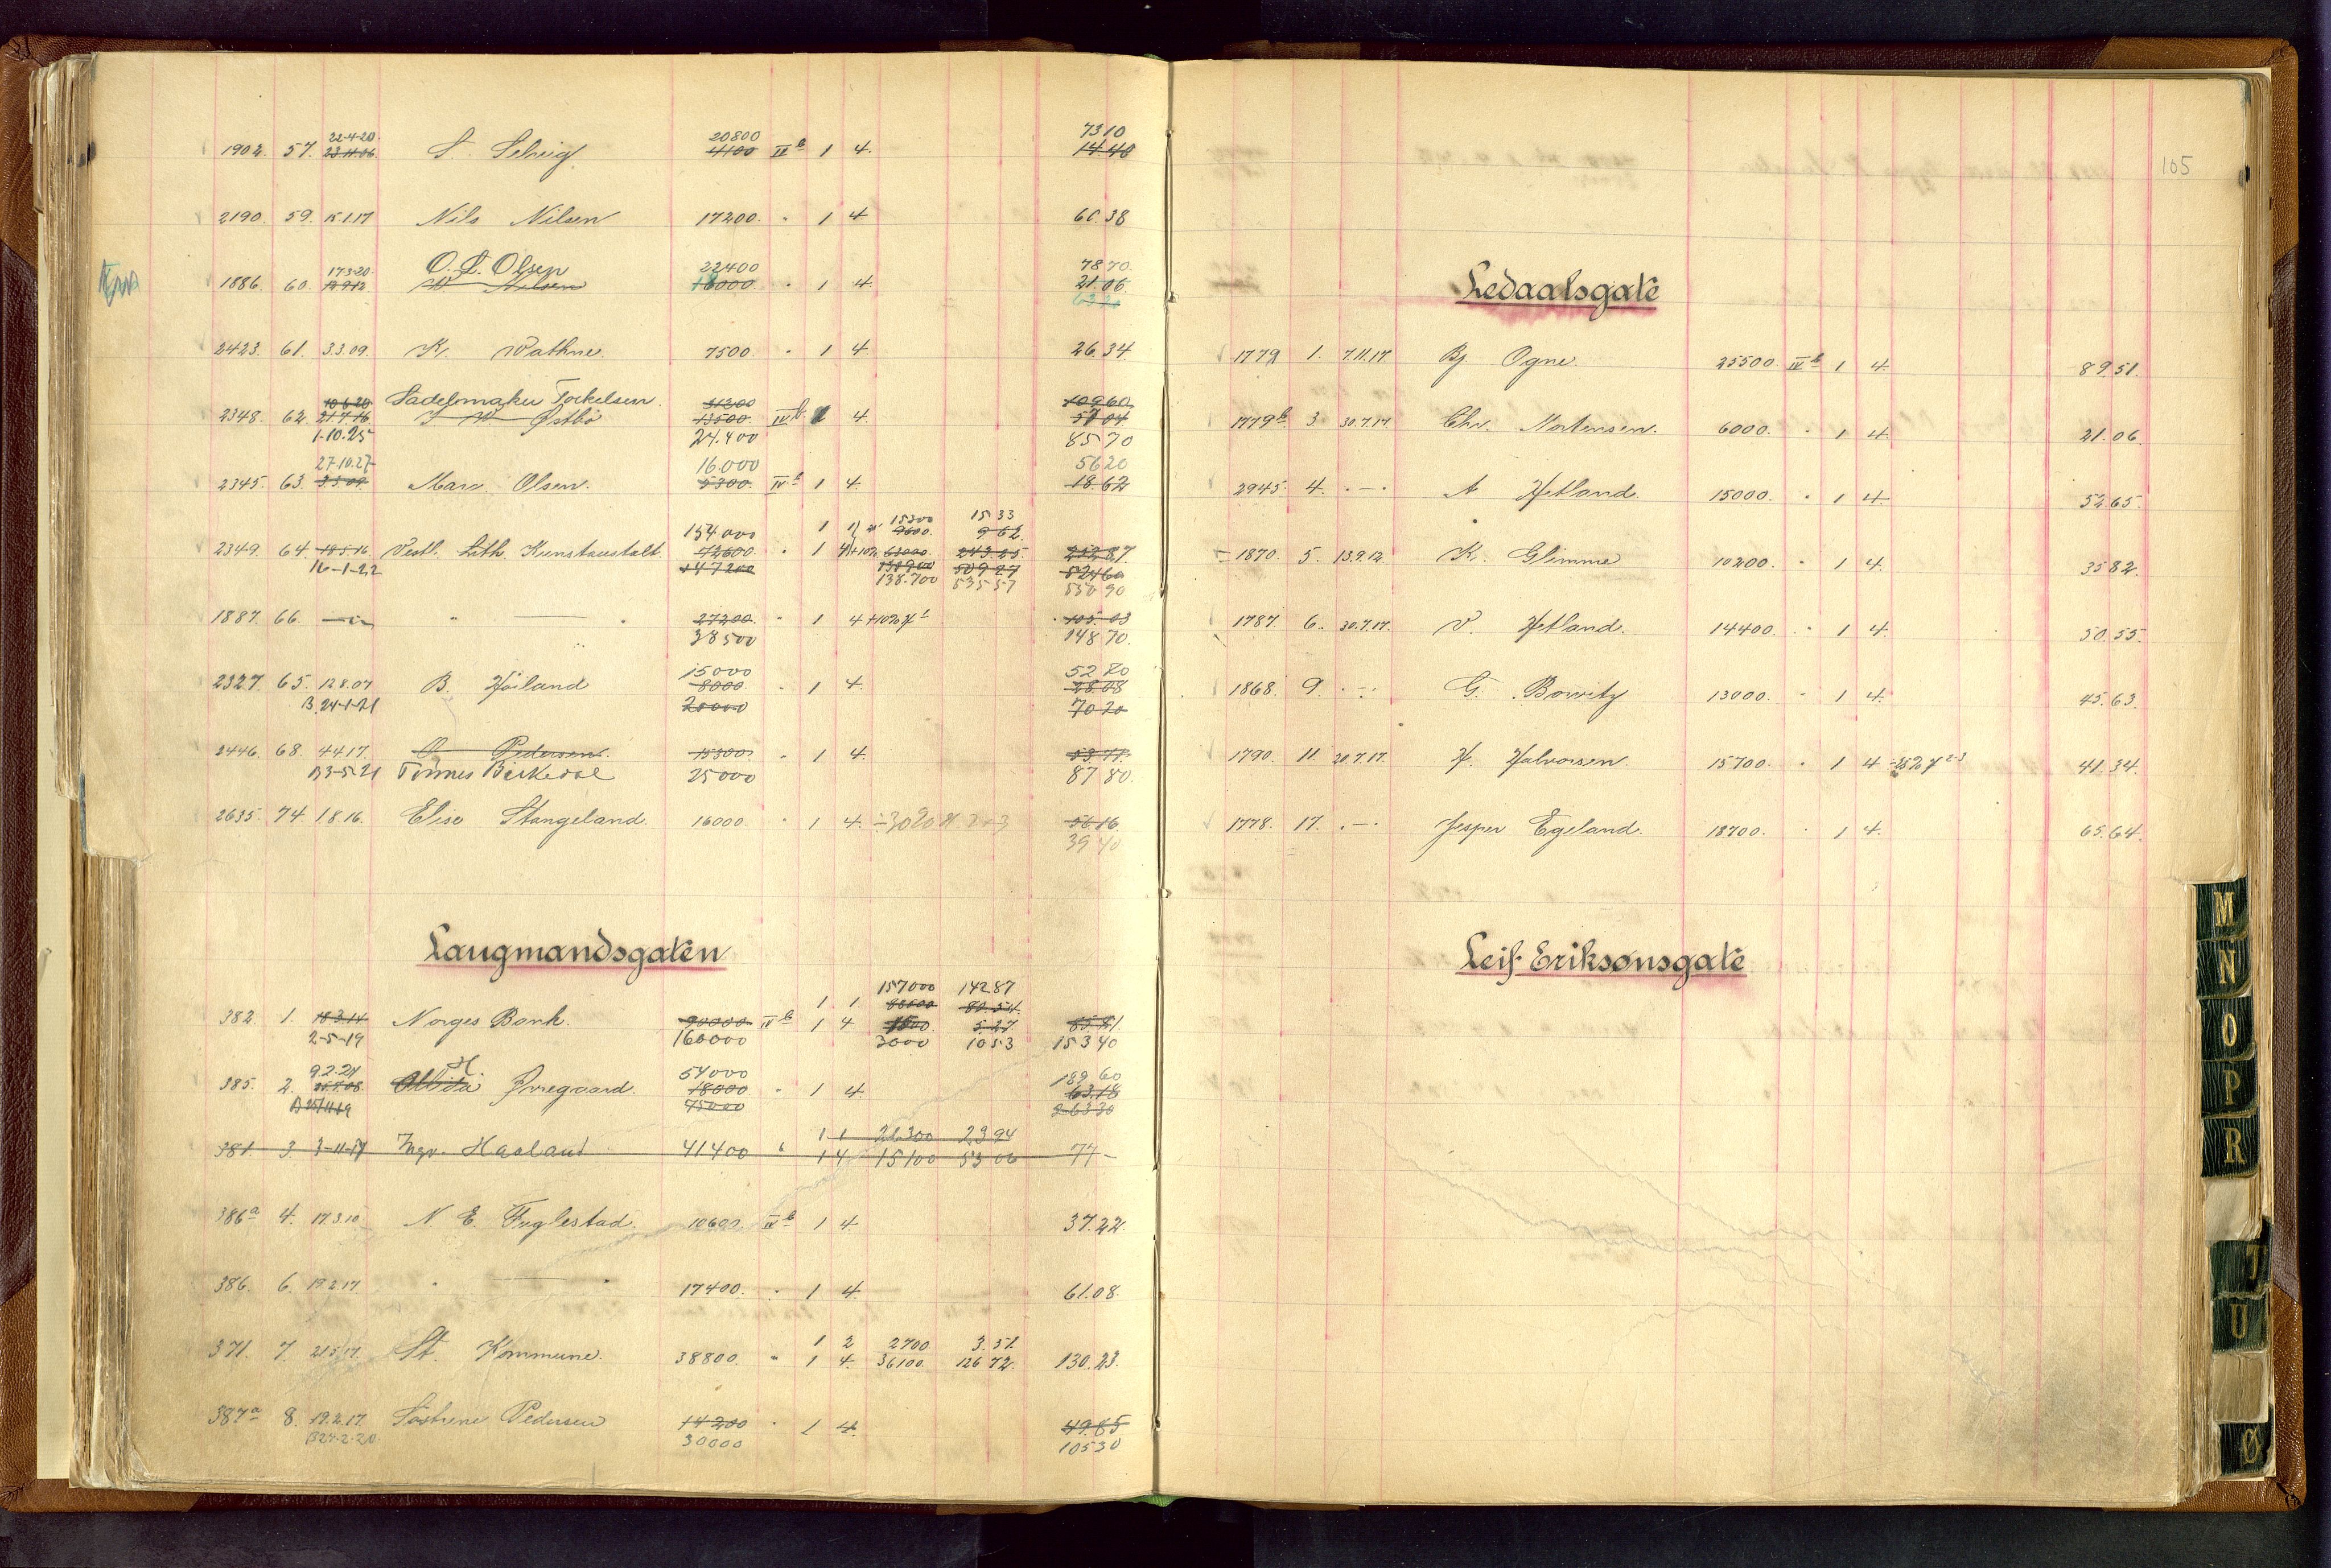 22-4-20. 20800 7310
1902. 57. 23.11.06 S. Selvig 4100 IV b 1 4. 14.40
2190. 59. 15.1.17 Nils Nilsen 17200. " 1 4 60.38
17.3.20. O. L. Olsen 22400 78 70.
1886. 60. 12.9.12 Nilsen 16000. " 1 4. 21.06
2423. 61. 3.3.09. K. Vathne. 7500. " 1 4. 26.34
10.6.20 Sadelmaker Torkelsen. 31200 109 60
2348. 62. 21.7.16 Østbø 13500. IV b 1 4.
1-10.25 24.400 85 70
27.10.27 16.000 56 20
2345. 63. 3.3.09 Marc. Olsen. 5300. IV b 1 4. 18.62
154000 1 1 15300 15 33
9600. 9 62
2349. 64. 18.5.16 Vestl. Lith. Kunstanstalt 72600. " 1 4 + 10% 63000 243.25 252.87
16-1-22 147200 131900 509 27 524 60
138.700 535 57 550 90
1887. 66. —"— " — " 27200. " 1 4 + 10% 105.03
38500 148 70.
15000 52 70
2327. 65. 12.8.07 B. Høiland 8000. " 1 4. 28.08
B. 24-1-21 20000 70 20
2446. 68. 4.4.17. O Pedersen. 15300. " 1 4. 53.71.
B 3-5-21 Tønnes Birkedal 25000 87 80.
2635. 74. 1.8.16. Elise Stangeland. 16000. " 1 4. ÷ 30 % 56.16
39 40
Laugmandsgaten
157000 142 87
1 1. 88500 80.54
382. 1. 18.3.14 Norges Bank. 90000 IV b 1 4. 1500 5.27 85.81
2-5-19 160000 3000 10 53 153 40
9.2.21 H 54000 189 60
385. 2. Alvida Ørregaard. 18000. " 1 4. 63.18
75000 263 30
1 1 26300 23 94
381. 3. 3-11-17 Ingv. Hasland 41400 " 1 4 15100 53 06 77 -
386a 4. 17.3.10 N. E. Fuglestad. 10600. IV b 1 4. 37.22.
386. 6. 19.2.17 " — " 17400. " 1 4. 61.08.
1 2 2700. 3.51.
371. 7. 21.5.17. St. Kommune. 38800. " 1 4. 36100. 126 72. 130.23.
387a 8. 19.2.17. Søstrene Pedersen 14200 " 1 4. 49.85
B 24-2-20. 30000 105 30
105
Ledaalsgate
1779 1. 7.11.17 Bj Ogne. 25500. IV b 1 4. 89.51.
1779b. 3 30.7.17 Chr. Mortensen. 6000. " 1 4. 21.06.
2945. 4. "—" A Hetland. 15000. " 1 4. 52.65.
1870. 5. 13.9.12 K. Glimme 10200. " 1 4. 35.82.
1787. 6. 30.7.17. V. Hetland. 14400. " 1 4. 50.55.
1868. 9. "—" G. Bowitz 13000. " 1 4. 45.63.
1790. 11. 20.7.17. H. Halvorsen. 15700. " 1 4 - 25% 41.34.
1778. 17. "—" Jesper Egeland. 18700. " 1 4. 65.64.
Leif Eriksønsgate
M
N
O
P
R
J
U
Ø